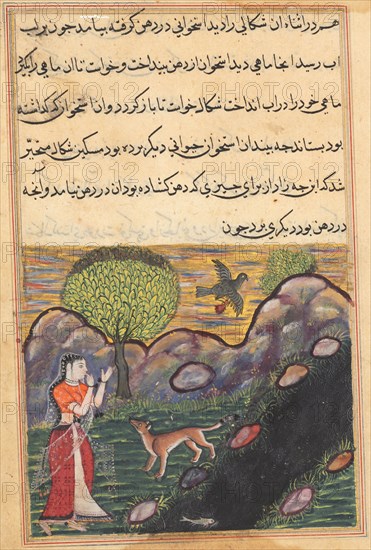 هر دو اثناء ان شکالی را دید استخوانی در دهن کرفته بیامد چون بر لب
اب رسید انجا ماهی دید استخوان از دهن بینداخت و خواست تا ان ماهی را بگیرد
ماهی خود را در اب انداخت شکال خواست تا باز کردد و ان استخوان که کذاشته
بود بستاند چه بیند ان استخوان حیوانی دیکر برده بود مسکین شکال متحیر
شد که انچه را از برای چیزی که دهن کشاده بود ان در دهن نیامد و آنچه
در دهن بود دیکری برد چون